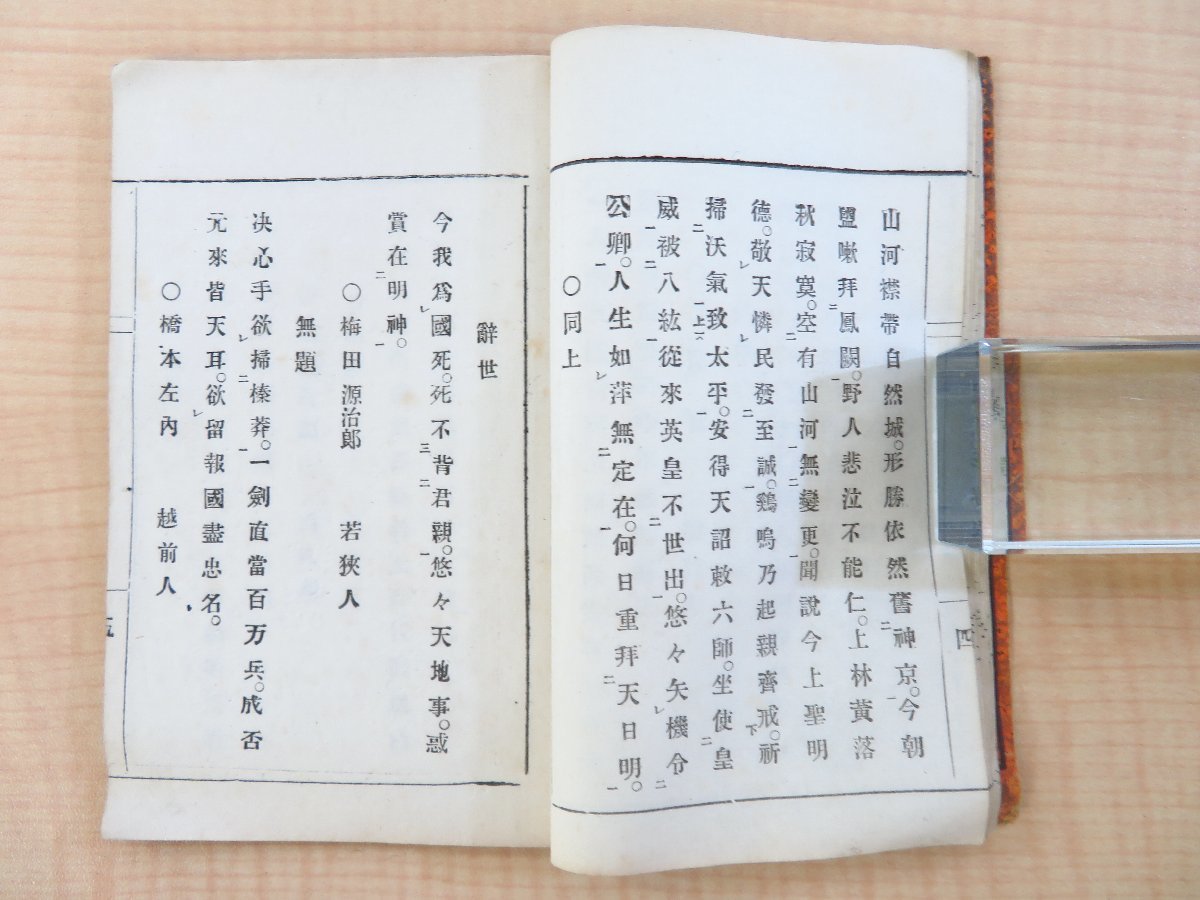 山河襟帶自然城。形勝依然舊神京。今朝
盥嗽拜鳳闕。野人悲泣不能仁。上林黃落
秋寂寞。空有山河無變更。聞說今上聖明
德。敬天憐民發至誠。鷄鳴乃起親齊戒。祈
掃沃氣致太平。安得天詔敕六師。坐使皇
威被八紘從來英皇不世出。悠々矢機今
公卿。人生如萍無定在。何日重拜天日明。
〇同上
四
辭世
今我爲國死。死不背君親。悠々天地事。惑
賞在明神。
〇梅田源治郎 若狹人
無題
决心手欲掃榛莽。一劍直當百万兵。成否
元來皆天耳。欲留報國盡忠名。
〇橋本左內 越前人